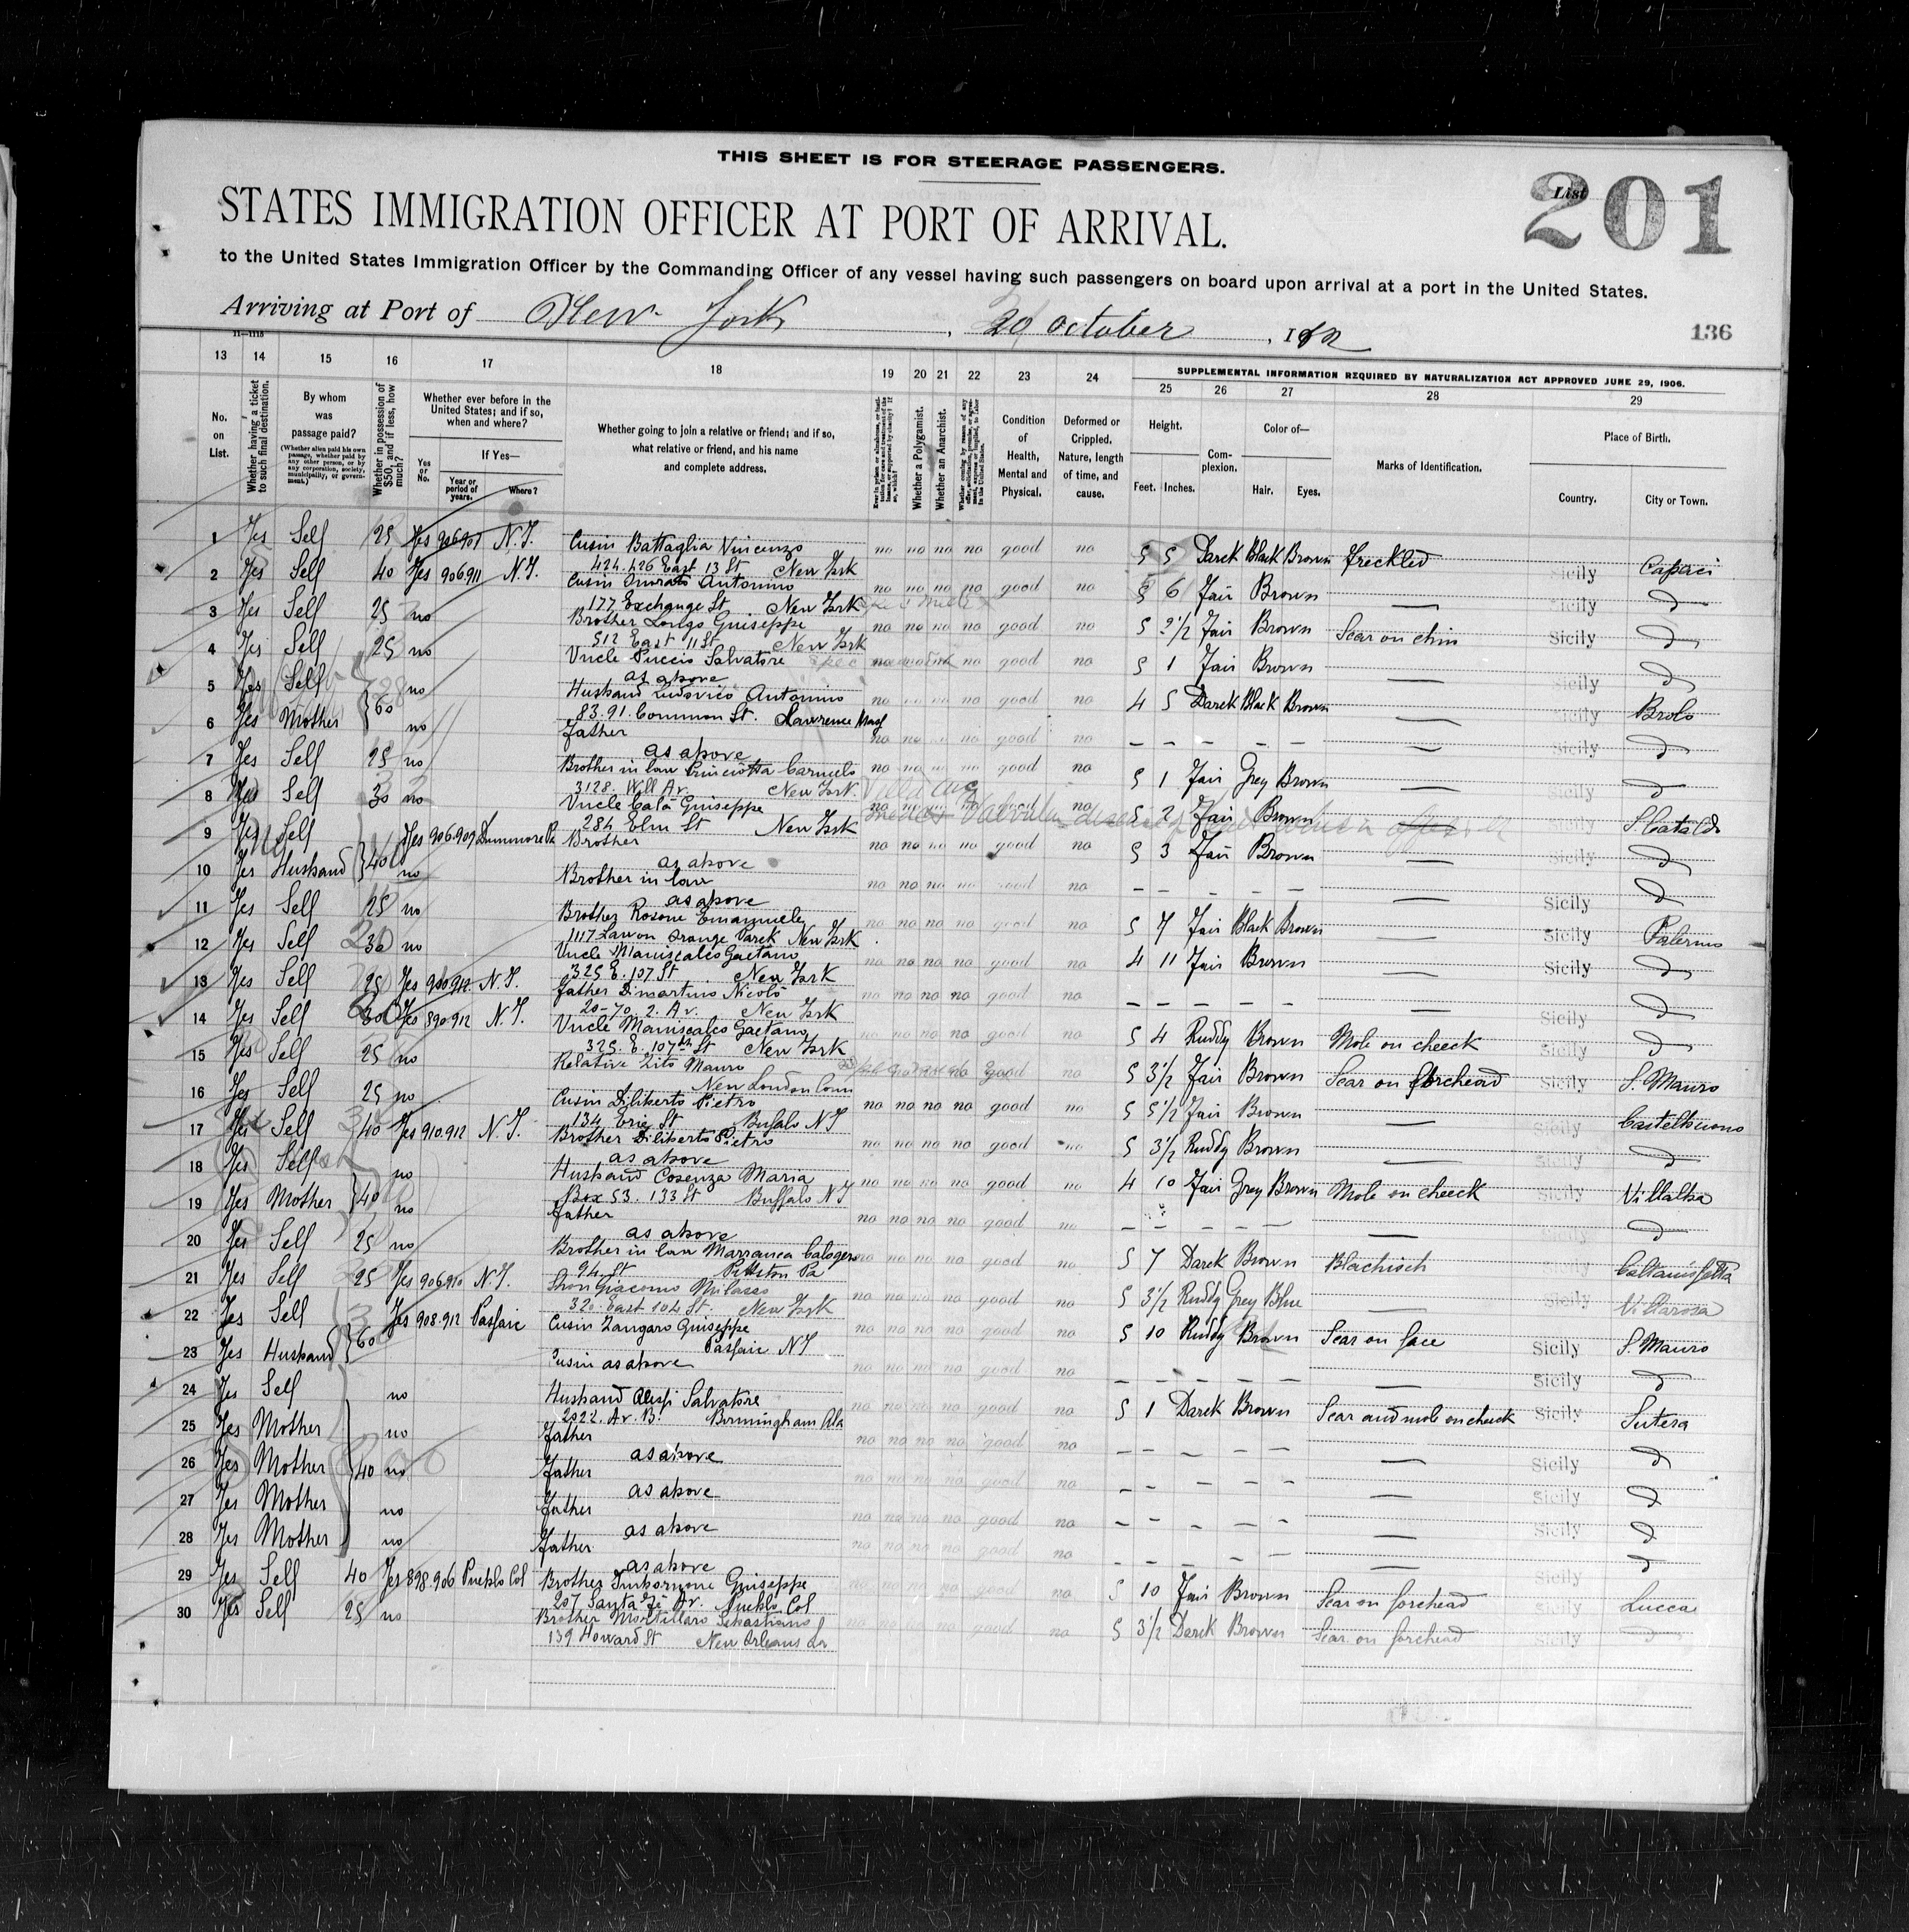 THIS SHEET IS FOR STEERAGE PASSENGERS.
List
201
STATES IMMIGRATION OFFICER AT PORT OF ARRIVAL.
to the United States Immigration Officer by the Commanding Officer of any vessel having such passengers on board upon arrival at a port in the United States.
Arriving at Port of New York, October, 19
136
11—1115
13 14 15 16 17 18 19 20 21 22 23 24
SUPPLEMENTAL INFORMATION REQUIRED BY NATURALIZATION ACT APPROVED JUNE 29, 1906.
25 26 27 28 29
No. on List.
Whether having a ticket to such final destination.
By whom was passage paid?
(Whether alien paid his own passage, whether paid by any other person, or by any corporation, society, municipality, or government.)
Whether in possession of $50, and if less, how much?
Whether ever before in the United States; and if so, when and where?
Yes or No.
If Yes—
Year or period of years.
Where?
Whether going to join a relative or friend; and if so, what relative or friend, and his name and complete address.
Whether a Polygamist.
Whether an Anarchist.
Condition of Health, Mental and Physical.
Deformed or Crippled. Nature, length of time, and cause.
Height.
Feet. Inches.
Complexion.
Color of—
Hair. Eyes.
Marks of Identification.
Place of Birth.
Country.
City or Town.
1 Yes Self 25 Yes N.Y. Cusin Battaglia Vincenzo no no no no good no 5 5 Darck Black Brown freckled Sicily Capaci
424.426 East 13 St New York
2 Yes Self 40 Yes 906911 N.Y. Cusin Antonino no no no no good no 5 6 Fair Brown — Sicily d
177 Exchange St. New York
3 Yes Self 25 no Brother Longo Guiseppe no no no no good no 5 2½ Fair Brown Scar on chin Sicily d
512 East 11 St New York
4 Yes Self 25 no Uncle Puccio Salvatore no no good no 5 1 Fair Brown — Sicily d
as above
5 Yes Self no Husband Ludovico Antonino no no no no good no 4 5 Darck Black Brown — Sicily Brolo
60
83.91. Common St. Lawrence Mass
6 Yes Mother no Father no no no no good no — — — — — Sicily d
as above
7 Yes Self 25 no Brother in law Carmelo no no no no good no 5 1 Fair Grey Brown — Sicily d
3128. Will Av. New York
8 Yes Self 30 no Uncle Cala Guiseppe no no no no good no 5 2 Fair Brown Sicily S Cataldo
284 Elm St New York
9 Yes Self Yes 906.909 Brother no no no no good no 5 3 Fair Brown — Sicily d
40
as above
10 Yes Husband no Brother in law no no no no good no — — — — — Sicily d
as above
11 Yes Self 25 no Brother Rosone Emanuele no no no no good no 5 7 Fair Black Brown — Sicily Palermo
1117 Orange Parck New York
12 Yes Self 30 no Uncle Maniscalco Gaetano no no no no good no 4 11 Fair Brown — Sicily d
325 E. 107 St New York
13 Yes Self 25 Yes N.Y. Father Dimartino Nicolo no no no no good no — — — — — Sicily d
20-70. 2. Av. New York
14 Yes Self 30 Yes 890912 N.Y. Uncle Maniscalco Gaetano no no no no good no 5 4 Ruddy Brown Mole on cheeck Sicily d
325. E. 107th St New York
15 Yes Self 25 no Relative Zito Mauro no good no 5 3½ Fair Brown Scar on forehead Sicily S. Mauro
New London Conn
16 Yes Self 25 no Cusin Diliberto Pietro no no no no good no 5 5½ Fair Brown — Sicily Castelbuono
134 Erie St Bufalo NY
17 Yes Self 40 Yes 910.912 N.Y. Brother Diliberto Pietro no no no no good no 5 3½ Ruddy Brown — Sicily d
as above
18 Yes Self no Husband Cosenza Maria no no no no good no 4 10 Fair Grey Brown Mole on cheeck Sicily Villalba
40
Box 53. 133 St Buffalo NY
19 Yes Mother no Father no no no no good no — — — — — Sicily d
as above
20 Yes Self 25 no Brother in law Marranca Calogero no no no no good no 5 7 Darck Brown Sicily Caltanissetta
94. St Pittston Pa
21 Yes Self 25 Yes 906910 N.Y. Giacomo no no no no good no 5 3½ Ruddy Grey Blue — Sicily Villarosa
320. East 104 St. New York
22 Yes Self Yes 908.912 Passaic Cusin Zangara Guiseppe no no no no good no 5 10 Ruddy Brown Scar on face Sicily S. Mauro
60
Passaic NY
23 Yes Husband Cusin as above no no no no good no — — — — — Sicily d
24 Yes Self no Husband Alessi Salvatore no no no no good no 5 1 Darck Brown Scar and mole on cheeck Sicily Sutera
2022. Av. B. Birmingham Ala
25 Yes Mother no Father no no no no good no — — — — — Sicily d
as above
26 Yes Mother 40 no Father no no no no good no — — — — — Sicily d
as above
27 Yes Mother no Father no no no no good no — — — — — Sicily d
as above
28 Yes Mother no Father no no no no good no — — — — — Sicily d
as above
29 Yes Self 40 Yes 898.906 Pueblo Col Brother Guiseppe no no no no good no 5 10 Fair Brown Scar on forehead Sicily Lucca
207 Santa Fè Av. Pueblo Col
30 Yes Self 25 no Brother Mortillaro Sebastiano no no no no good no 5 3½ Darck Brown Scar on forehead Sicily d
139 Howard St New Orleans La